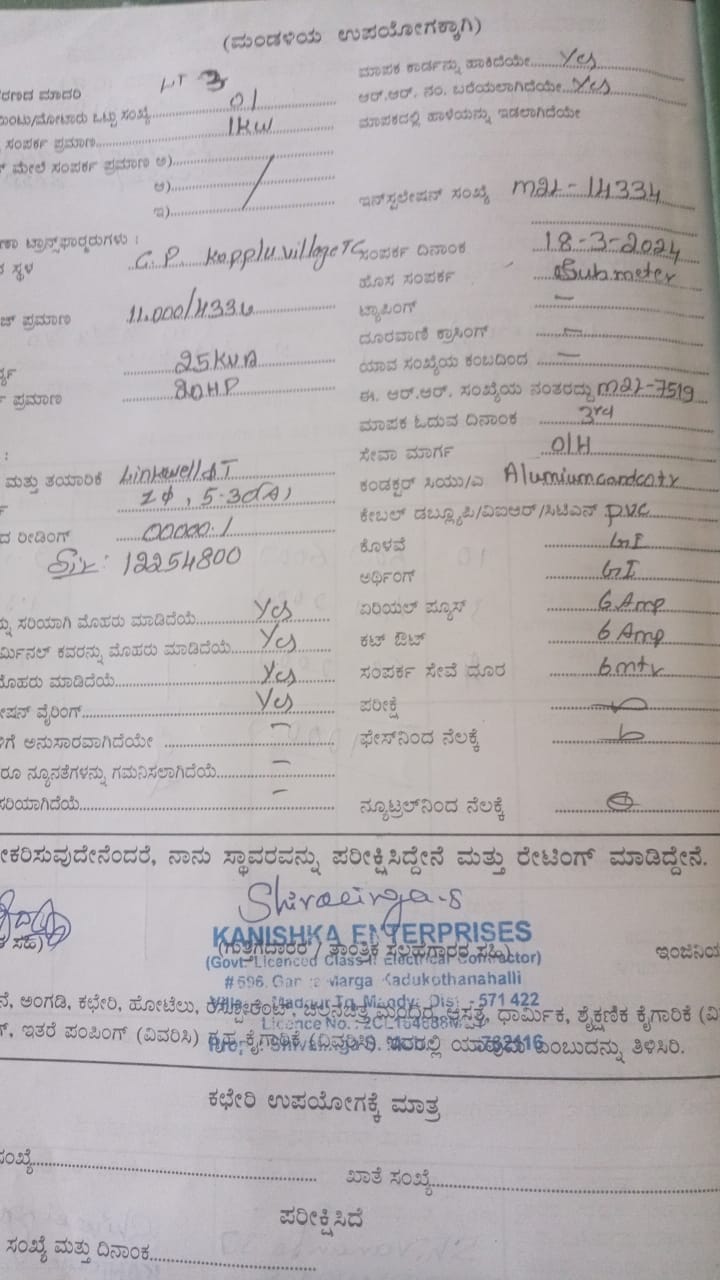 (ಮಂಡಳಿಯ ಉಪಯೋಗಕ್ಕಾಗಿ)
ರಣದ ಮಾದರಿ LT 3
ಒಟ್ಟು ಸಂಖ್ಯೆ 01
ಸಂಪರ್ಕ ಪ್ರಮಾಣ 1KW
ಮೇಲೆ ಸಂಪರ್ಕ ಪ್ರಮಾಣ ಅ)
ಆ)
ಇ)
ಟ್ರಾನ್ಸ್‌ಫಾರ್ಮರುಗಳು :
ಸ್ಥಳ G.P. Kopplu village TC
ಪ್ರಮಾಣ 11.000/433
25KVA
ಪ್ರಮಾಣ 20HP
ಮತ್ತು ತಯಾರಿಕೆ Linkwell
1Φ, 5-30(A)
ದ ರೀಡಿಂಗ್ 00000.1
12254800
ಸರಿಯಾಗಿ ಮೊಹರು ಮಾಡಿದೆಯೆ Yes
ರ್ಮಿನಲ್ ಕವರನ್ನು ಮೊಹರು ಮಾಡಿದೆಯೆ Yes
ಮೊಹರು ಮಾಡಿದೆಯೆ Yes
ೇಷನ್ ವೈರಿಂಗ್ Yes
ಗೆ ಅನುಸಾರವಾಗಿದೆಯೇ –
ರೂ ನ್ಯೂನತೆಗಳನ್ನು ಗಮನಿಸಲಾಗಿದೆಯೆ –
ಸರಿಯಾಗಿದೆಯೆ –
ಮಾಪಕ ಕಾರ್ಡನ್ನು ಹಾಕಿದೆಯೇ Yes
ಆರ್.ಆರ್. ನಂ. ಬರೆಯಲಾಗಿದೆಯೇ Yes
ಮಾಪಕದಲ್ಲಿ ಹಾಳೆಯನ್ನು ಇಡಲಾಗಿದೆಯೇ
ಇನ್‌ಸ್ಟಲೇಷನ್ ಸಂಖ್ಯೆ M2L-14334
ಸಂಪರ್ಕ ದಿನಾಂಕ 18-3-2024
ಹೊಸ ಸಂಪರ್ಕ Submeter
ಟ್ಯಾಪಿಂಗ್ –
ದೂರವಾಣಿ ಕ್ರಾಸಿಂಗ್ –
ಯಾವ ಸಂಖ್ಯೆಯ ಕಂಬದಿಂದ –
ಈ. ಆರ್.ಆರ್. ಸಂಖ್ಯೆಯ ನಂತರದ್ದು M2L-7519
ಮಾಪಕ ಓದುವ ದಿನಾಂಕ 3rd
ಸೇವಾ ಮಾರ್ಗ O/H
ಕಂಡಕ್ಟರ್ ಸಿಯು/ಎ Alumium
ಕೇಬಲ್ ಡಬ್ಲ್ಯೂಪಿ/ವಿಐಆರ್/ಸಿಟಿಎಸ್ P.V.C
ಕೊಳವೆ GI
ಅರ್ಥಿಂಗ್ GI
ಏರಿಯಲ್ ಫ್ಯೂಸ್ 6 Amp
ಕಟ್ ಔಟ್ 6 Amp
ಸಂಪರ್ಕ ಸೇವೆ ದೂರ 6 mtr
ಪರೀಕ್ಷೆ
ಫೇಸ್‌ನಿಂದ ನೆಲಕ್ಕೆ
ನ್ಯೂಟ್ರಲ್‌ನಿಂದ ನೆಲಕ್ಕೆ
ೀಕರಿಸುವುದೇನೆಂದರೆ, ನಾನು ಸ್ಥಾವರವನ್ನು ಪರೀಕ್ಷಿಸಿದ್ದೇನೆ ಮತ್ತು ರೇಟಿಂಗ್ ಮಾಡಿದ್ದೇನೆ.
KANISHKA ENTERPRISES
(ಗುತ್ತಿಗೆದಾರರ / ತಾಂತ್ರಿಕ ಸಲಹೆಗಾರರ ಸಹಿ) ಇಂಜಿನಿಯ
(Govt. Licenced Class-I Electrical Contractor)
Marga Kadukothanahalli
571 422
ೆ, ಅಂಗಡಿ, ಕಛೇರಿ, ಹೋಟೆಲು, ರೆಸ್ಟೋರೆಂಟ್, ಚಲನಚಿತ್ರ ಮಂದಿರ, ಆಸ್ಪತ್ರೆ, ಧಾರ್ಮಿಕ, ಶೈಕ್ಷಣಿಕ ಕೈಗಾರಿಕೆ (ವಿ
Licence No.
ಇತರೆ ಪಂಪಿಂಗ್ (ವಿವರಿಸಿ) ಗೃಹ ಕೈಗಾರಿಕೆ (ವಿವರಿಸಿ) ಇದರಲ್ಲಿ ಯಾವುದು ಎಂಬುದನ್ನು ತಿಳಿಸಿರಿ.
ಕಛೇರಿ ಉಪಯೋಗಕ್ಕೆ ಮಾತ್ರ
ಸಂಖ್ಯೆ ಖಾತೆ ಸಂಖ್ಯೆ
ಪರೀಕ್ಷಿಸಿದೆ
ಸಂಖ್ಯೆ ಮತ್ತು ದಿನಾಂಕ